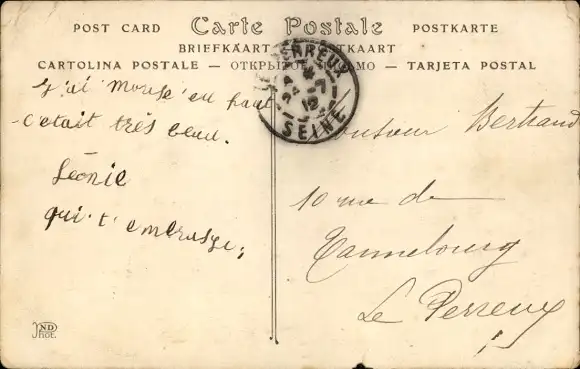 POST CARD Carte Postale POSTKARTE
BRIEFKAART
CARTOLINA POSTALE — ОТКРЫТОЕ — TARJETA POSTAL
PERREUX
SEINE
J'ai monté en haut
c'était très beau.
Léonie
qui t'embrasse.
Monsieur Bertrand
10 rue de
Le Perreux
ND
Phot.